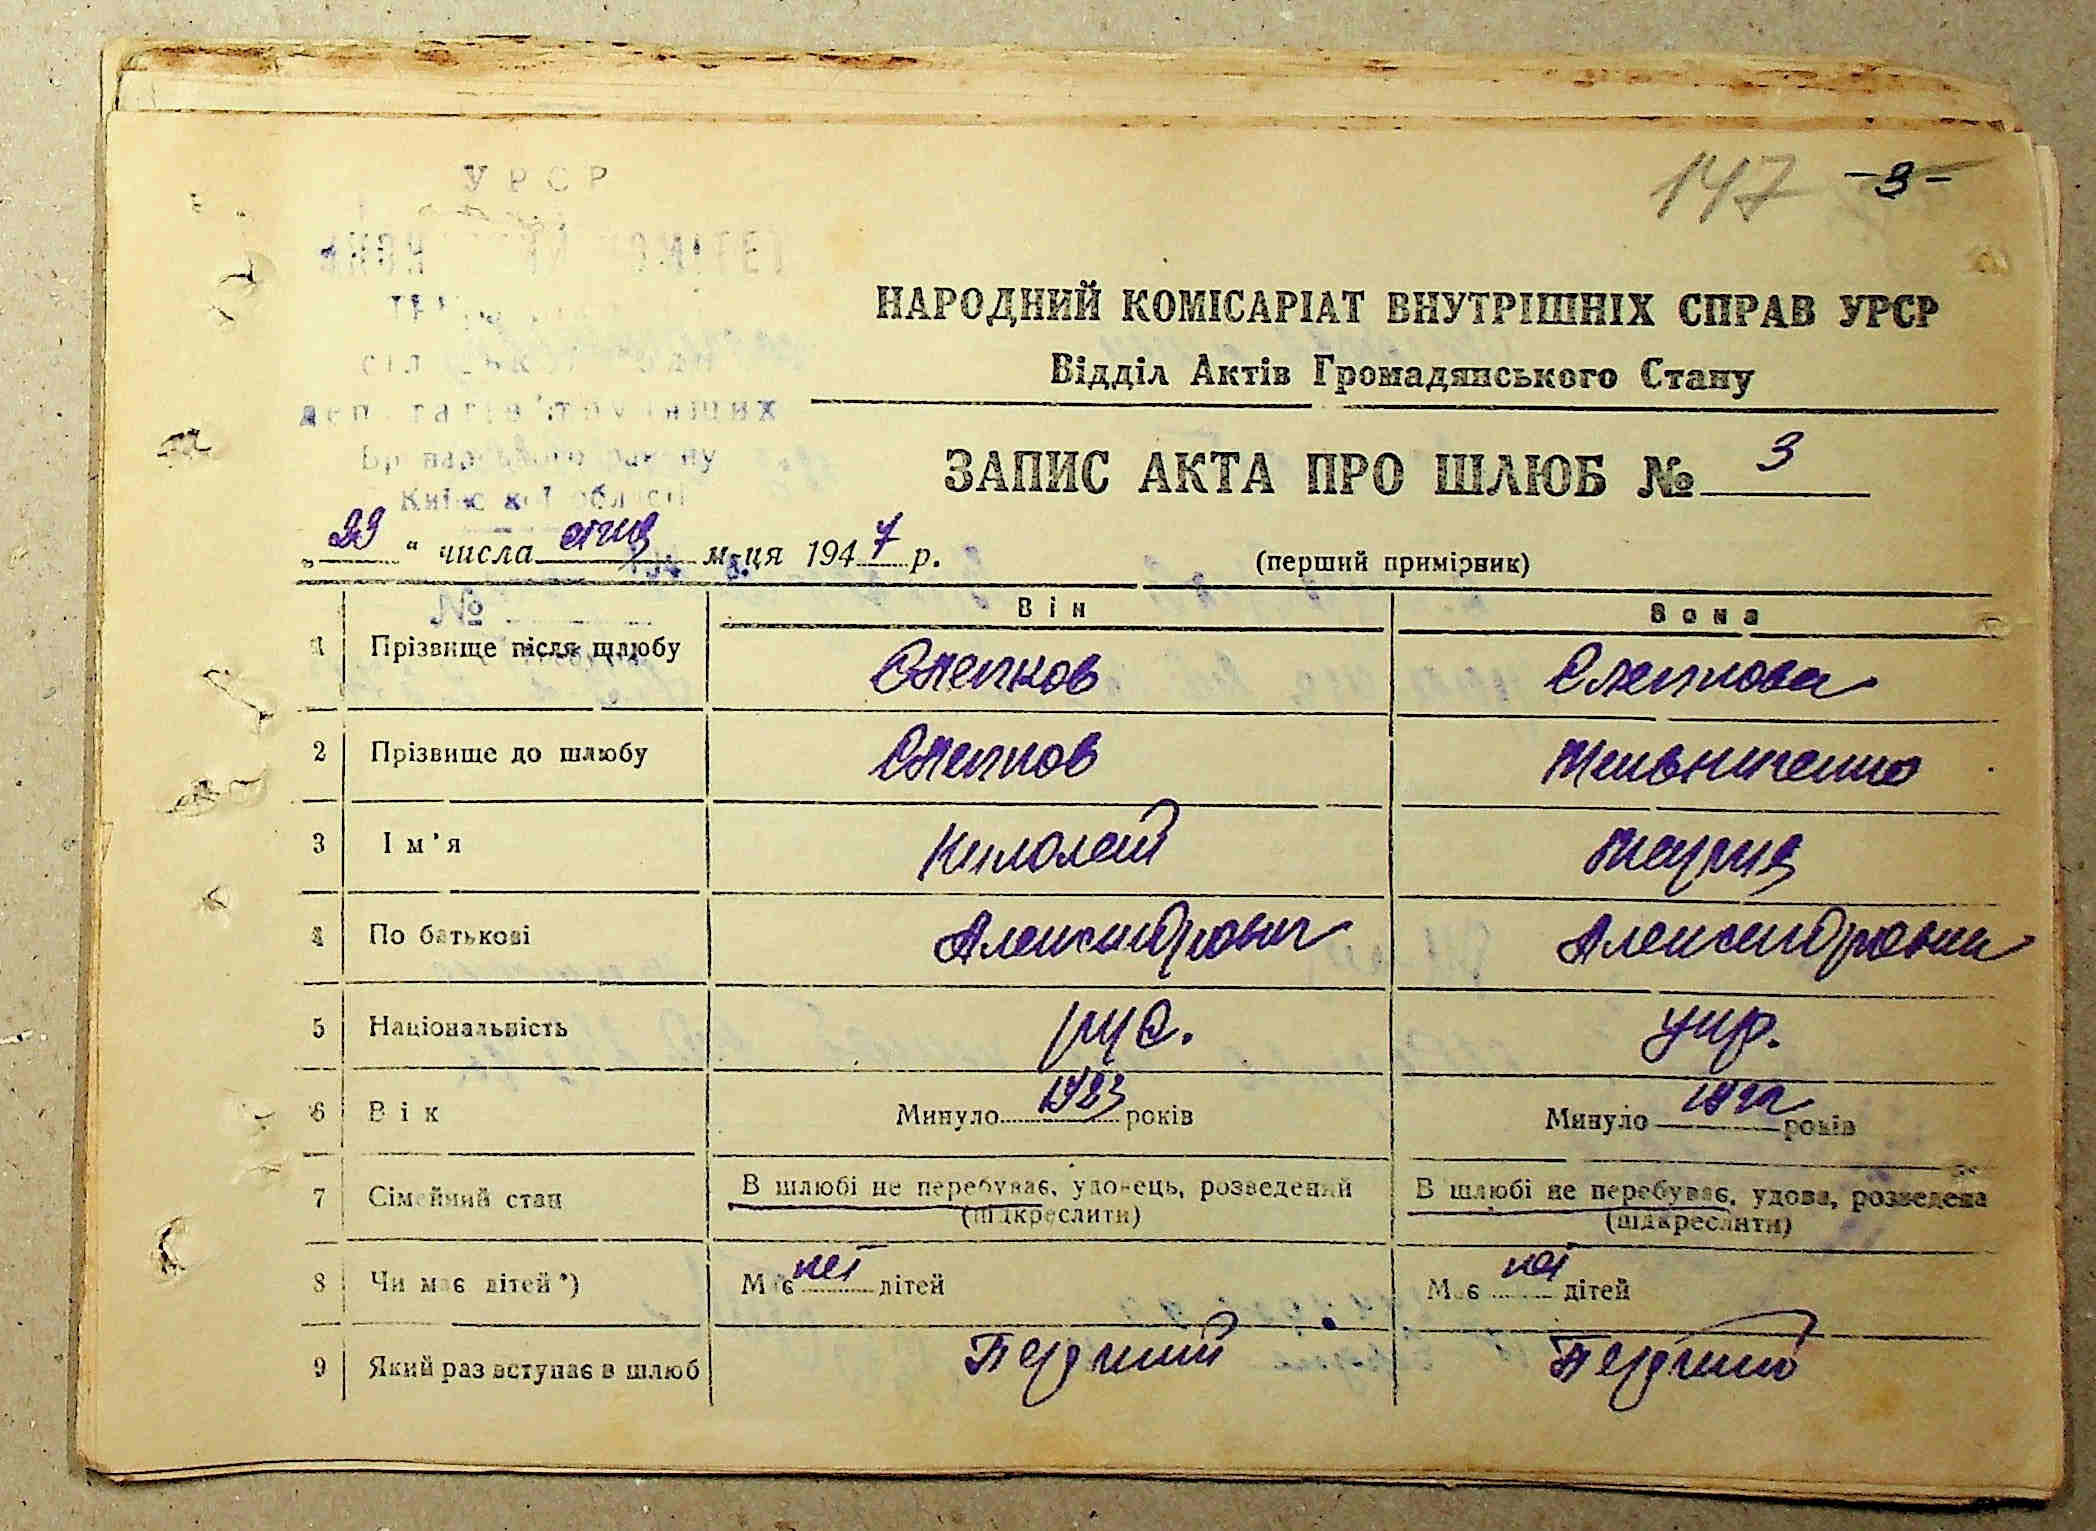 147 -3-
УРСР
НАРОДНИЙ КОМІСАРІАТ ВНУТРІШНІХ СПРАВ УРСР
Відділ Актів Громадянського Стану
ЗАПИС АКТА ПРО ШЛЮБ № 3
Київської області
„23“ числа м-ця 1947 р. (перший примірник)
№
Він Вона
1 Прізвище після шлюбу Слепков Слепкова
2 Прізвище до шлюбу Слепков Мельниченко
3 Ім'я Николай Мария
4 По батькові Александрович Александровна
5 Національність рус. укр.
6 Вік Минуло 1923 років Минуло 1922 років
7 Сімейний стан В шлюбі не перебуває, удовець, розведений В шлюбі не перебуває, удова, розведена
(підкреслити) (підкреслити)
8 Чи має дітей*) Має нет дітей Має нет дітей
9 Який раз вступає в шлюб Первый Первый